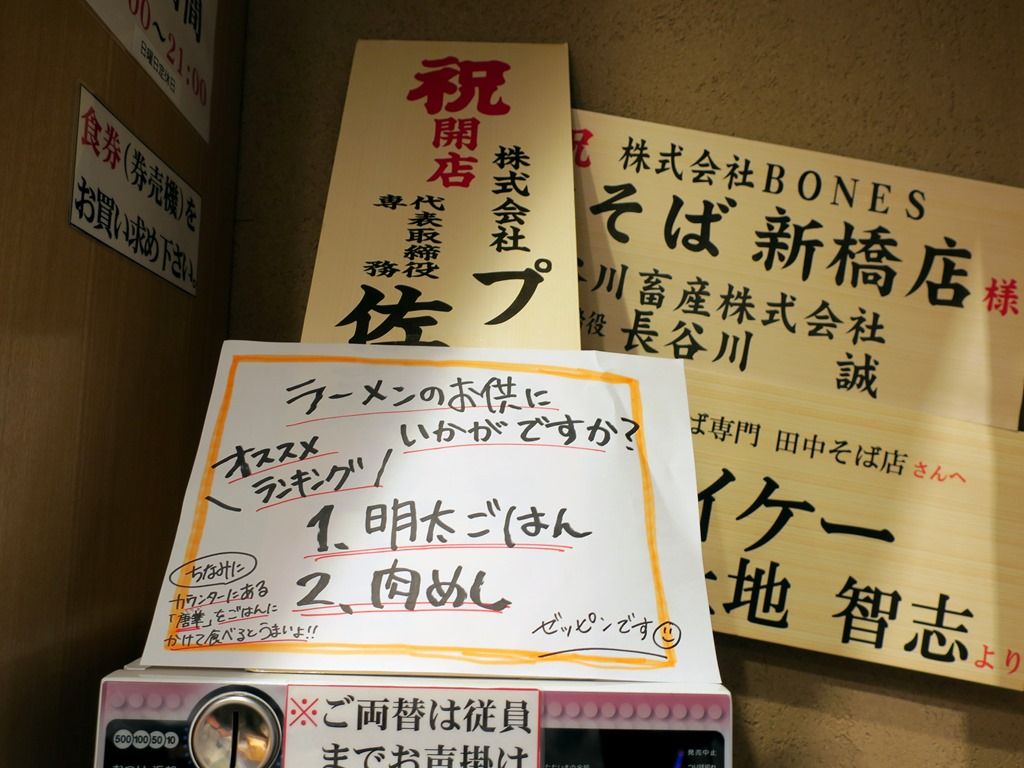 間
00～21:00
日曜日定休日
食券(券売機)を
お買い求め下さい。
祝
開店
株式会社
プ
代表取締役
専務
佐
祝
株式会社BONES
そば 新橋店 様
川畜産株式会社
役 長谷川 誠
ば専門 田中そば店 さんへ
イケー
地 智志 より
ラーメンのお供に
いかがですか?
オススメ
ランキング
1、明太ごはん
2、肉めし
ちなみに
カウンターにある
「唐華」をごはんに
かけて食べるとうまいよ!!
ゼッピンです
※ご両替は従業員
までお声掛け
500 100 50 10
発売中止